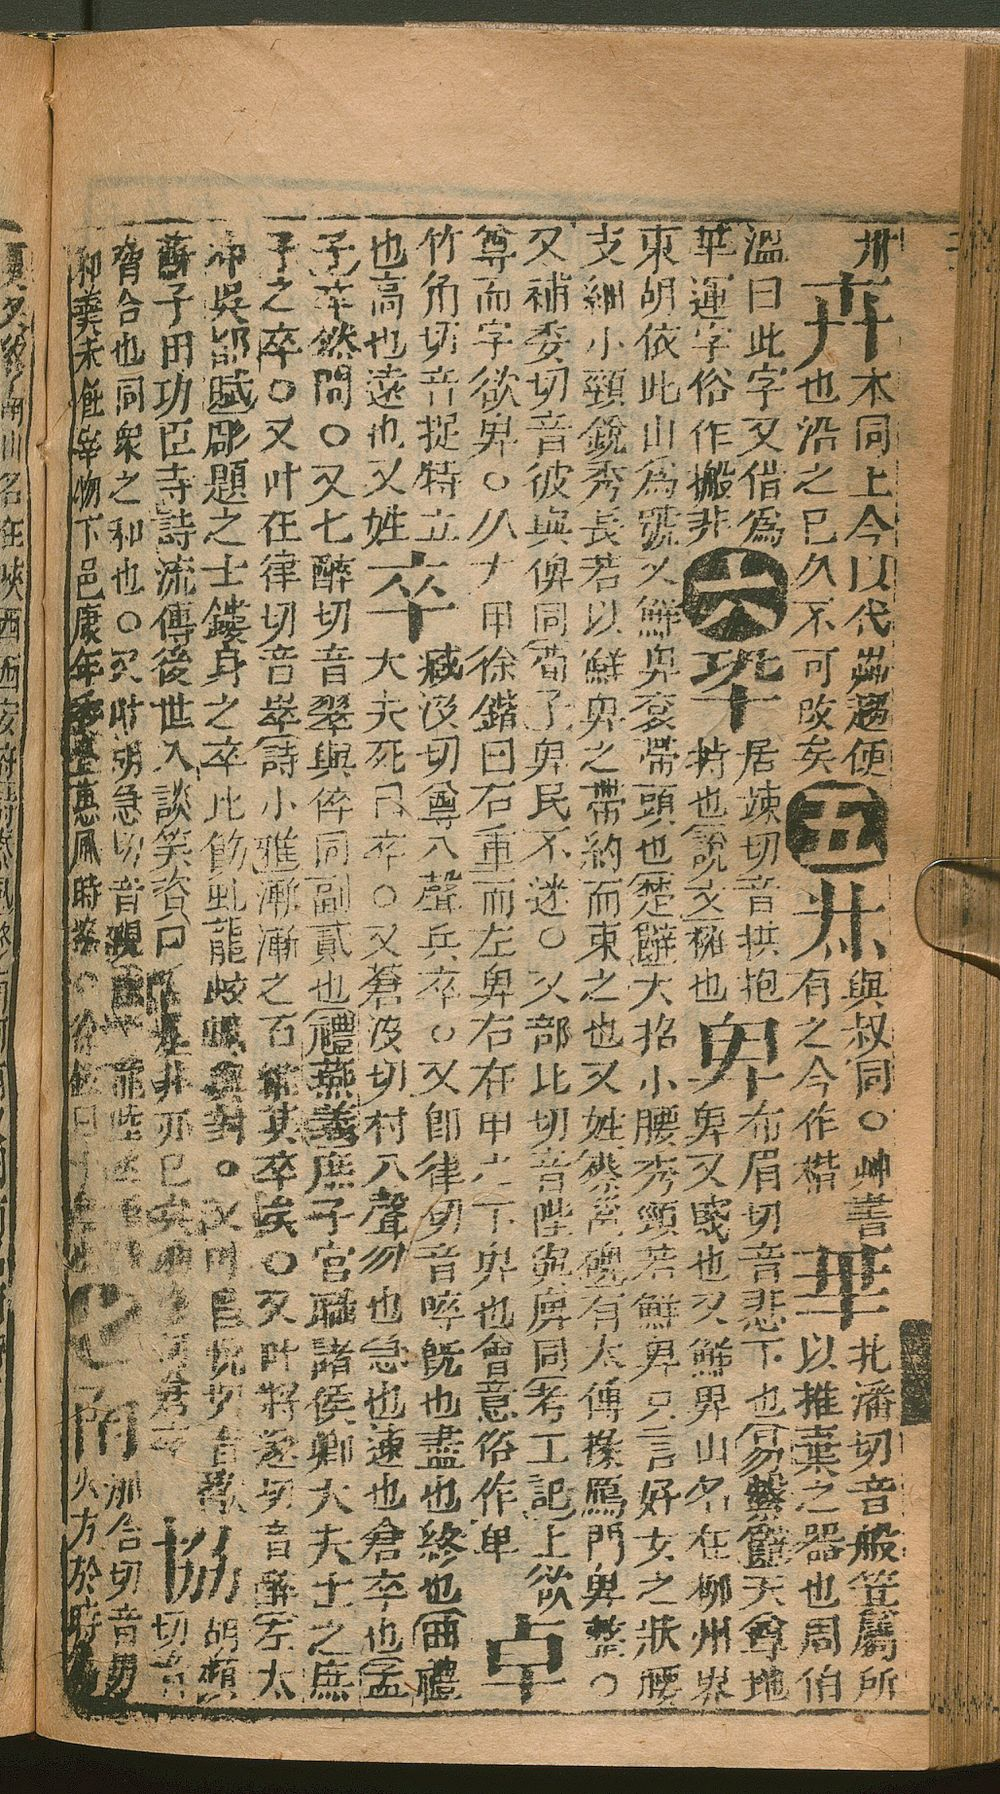 卉
木同上今以代艸趨便
也沿之已久不可改矣
五
朩
與叔同〇艸書
有之今作楷
華
北潘切音般箕屬所
以推棄之器也周伯
溫曰此字又借為
華運字俗作搬非
六
巩
居竦切音拱抱
持也說文𢹬也
卑
布眉切音悲下也易繫辭天尊地
卑又賤也又鮮卑山名在柳州界
東胡依此山為號又鮮卑袞帶頭也楚辭大招小腰秀頸若鮮卑只言好女之狀腰
支細小頸銳秀長若以鮮卑之帶約而束之也又姓蔡邕碑有太傅掾鴈門卑整〇
又補委切音彼與俾同荀子卑民不迷〇又部比切音陛與庳同考工記上欲
尊而字欲卑〇从𠂇甲徐鍇曰右重而左卑右在甲之下卑也會意俗作卑
卓
竹角切音捉特立
也高也遠也又姓
卒
臧沒切尊入聲兵卒〇又即律切音啐旣也盡也終也曲禮
大夫死曰卒〇又蒼沒切村入聲勿也急也速也倉卒也孟
子卒然問〇又七醉切音翠與倅同副貳也禮燕義庶子官職諸侯卿大夫士之庶
子之卒〇又叶在律切音崒詩小雅漸漸之石維其卒矣〇又叶將遂切音醉左太
冲吳都賦雕題之士鏤身之卒比飾虬龍蛟螭與對〇又叶昌悅切音歠
蘇子由功臣寺詩流傳後世人談笑資口舌是非亦已矣
協
胡頰
切音
脅合也同衆之和也〇又叶胡急切音